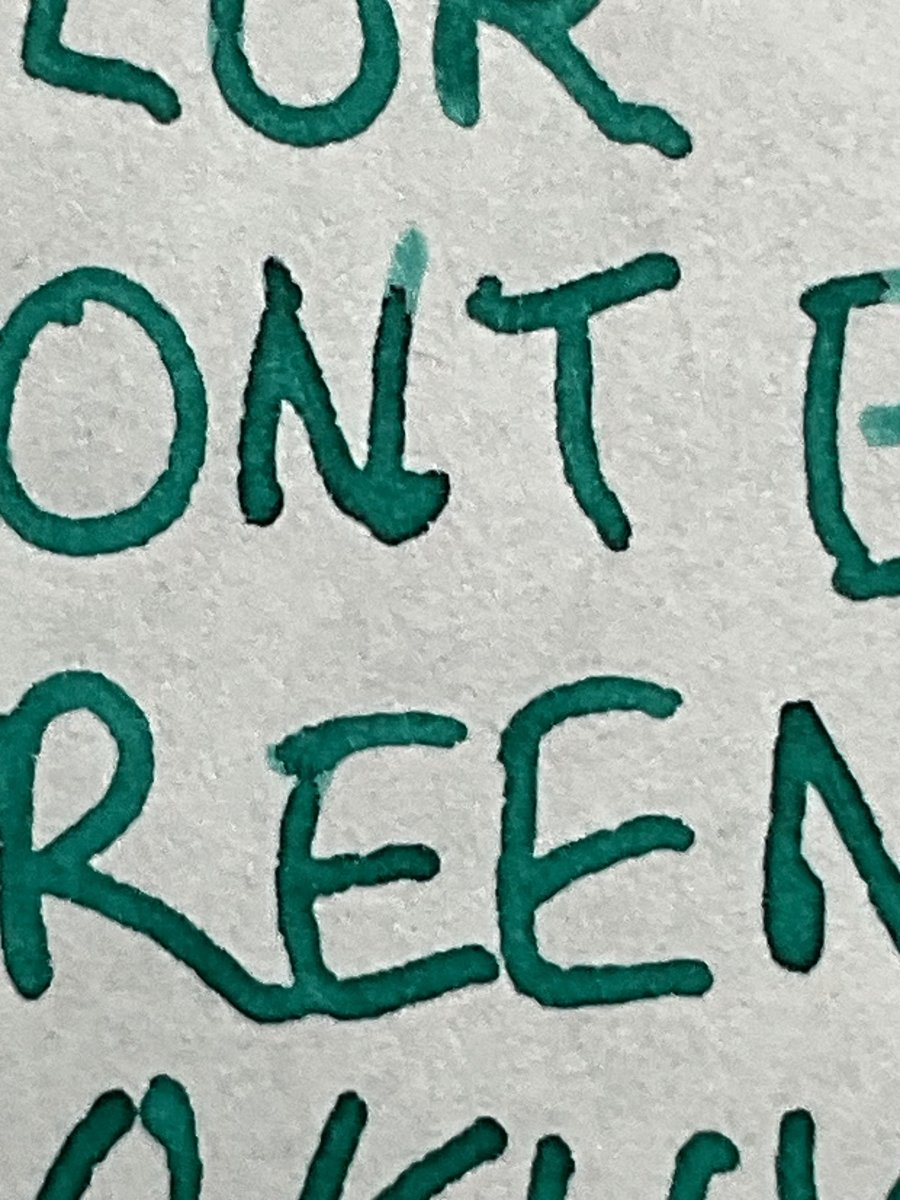 LOR
ONT E
REEN